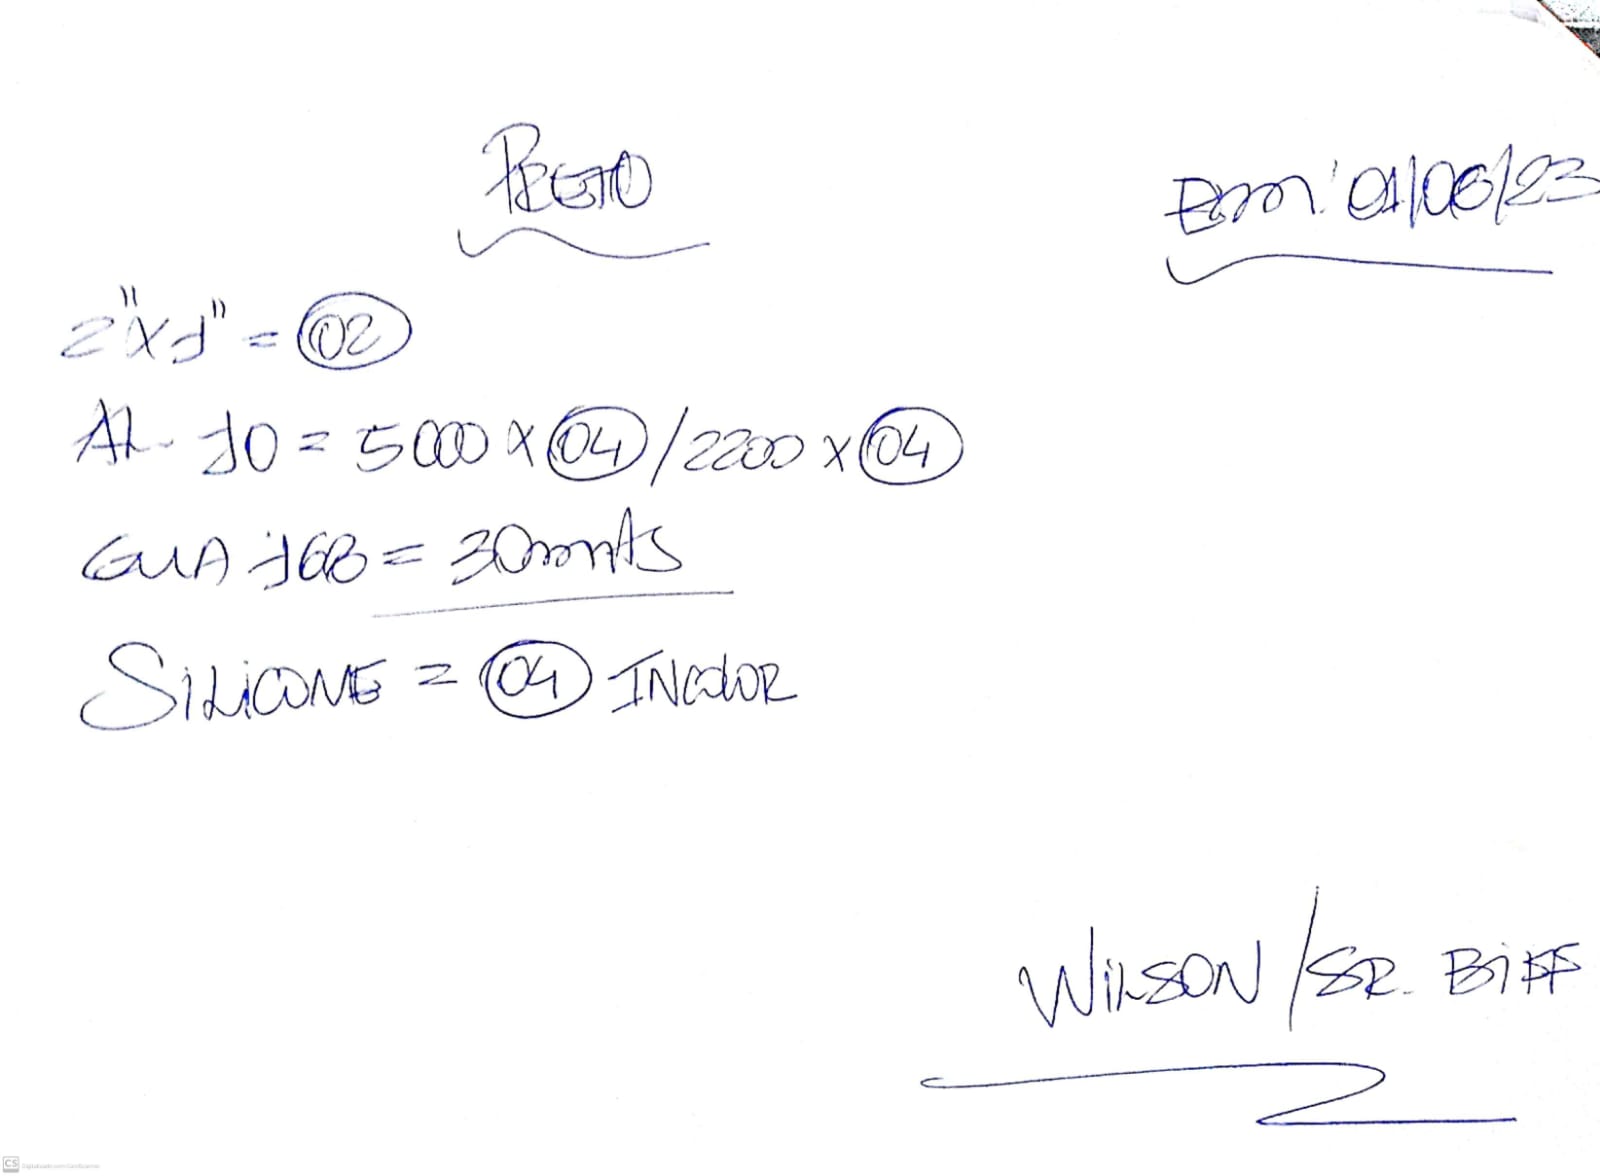 PRETO
Em: 01/08/23
2"x1" = 02
AL-10 = 5000 x 04 / 2200 x 04
GUA 168 = 30mts
SILICONE = 04 INCOLOR
WILSON / SR. BIFF
CS